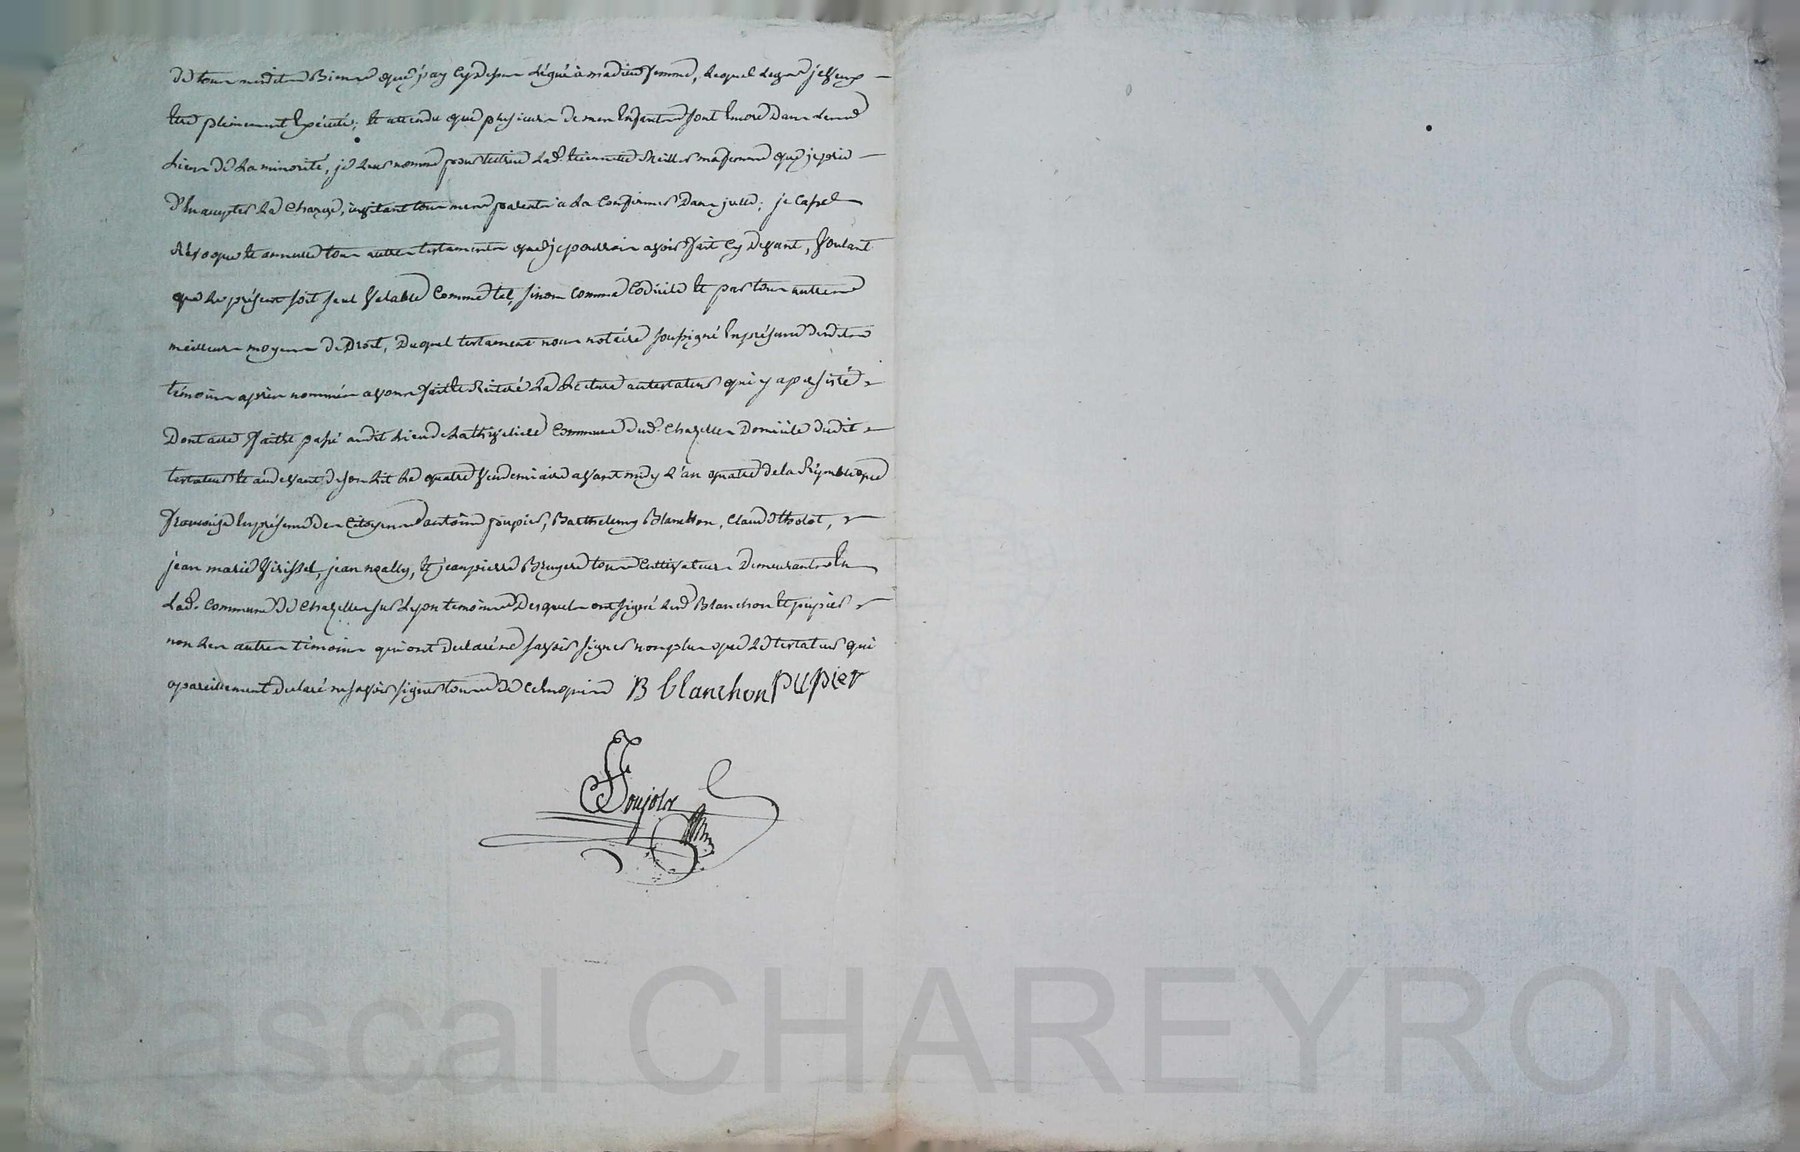 de tous mesdits Biens que j'ay cydessus légué à madite femme, lequel legs je veux
être pleinement Exécuté; et attendu que plusieurs de mes Enfants sont Encore dans les
liens de la minorité, je leur nomme pour tutrice lad. ma femme que je prie
d'En accepter la charge, invitant tous mes parents à la confirmer dans jcelle; je casse
révoque et annulle tous autres testaments que je pourrois avoir fait cy devant, voulant
que le présent soit seul valable comme tel, sinon comme Codicile et par tous autres
meilleurs moyens de Droit, Duquel testament nous notaire soussigné En présence desdits
témoins après nommés avons fait et réitéré la lecture au testateur qui y a persisté
Dont acte fait et passé audit lieu de commune dud. Chazelles Domicile dudit
testateur et au devant de son lit le quatre vendemiaire avant midy l'an quatre de la République
françoise En présence des Citoyens antoine pupier, Barthelemy Blanchon, Claude
jean marie jean et jean pierre Bruyere tous Cultivateurs Demeurants En
lad. Commune de Chazelles sur Lyon temoins Desquels ont signé lesd. Blanchon et pupier
non les autres témoins qui ont declaré ne savoir signer non plus que le testateur qui
a pareillement declaré ne savoir signer tous de ce
B blanchon pupier
Pascal CHAREYRON